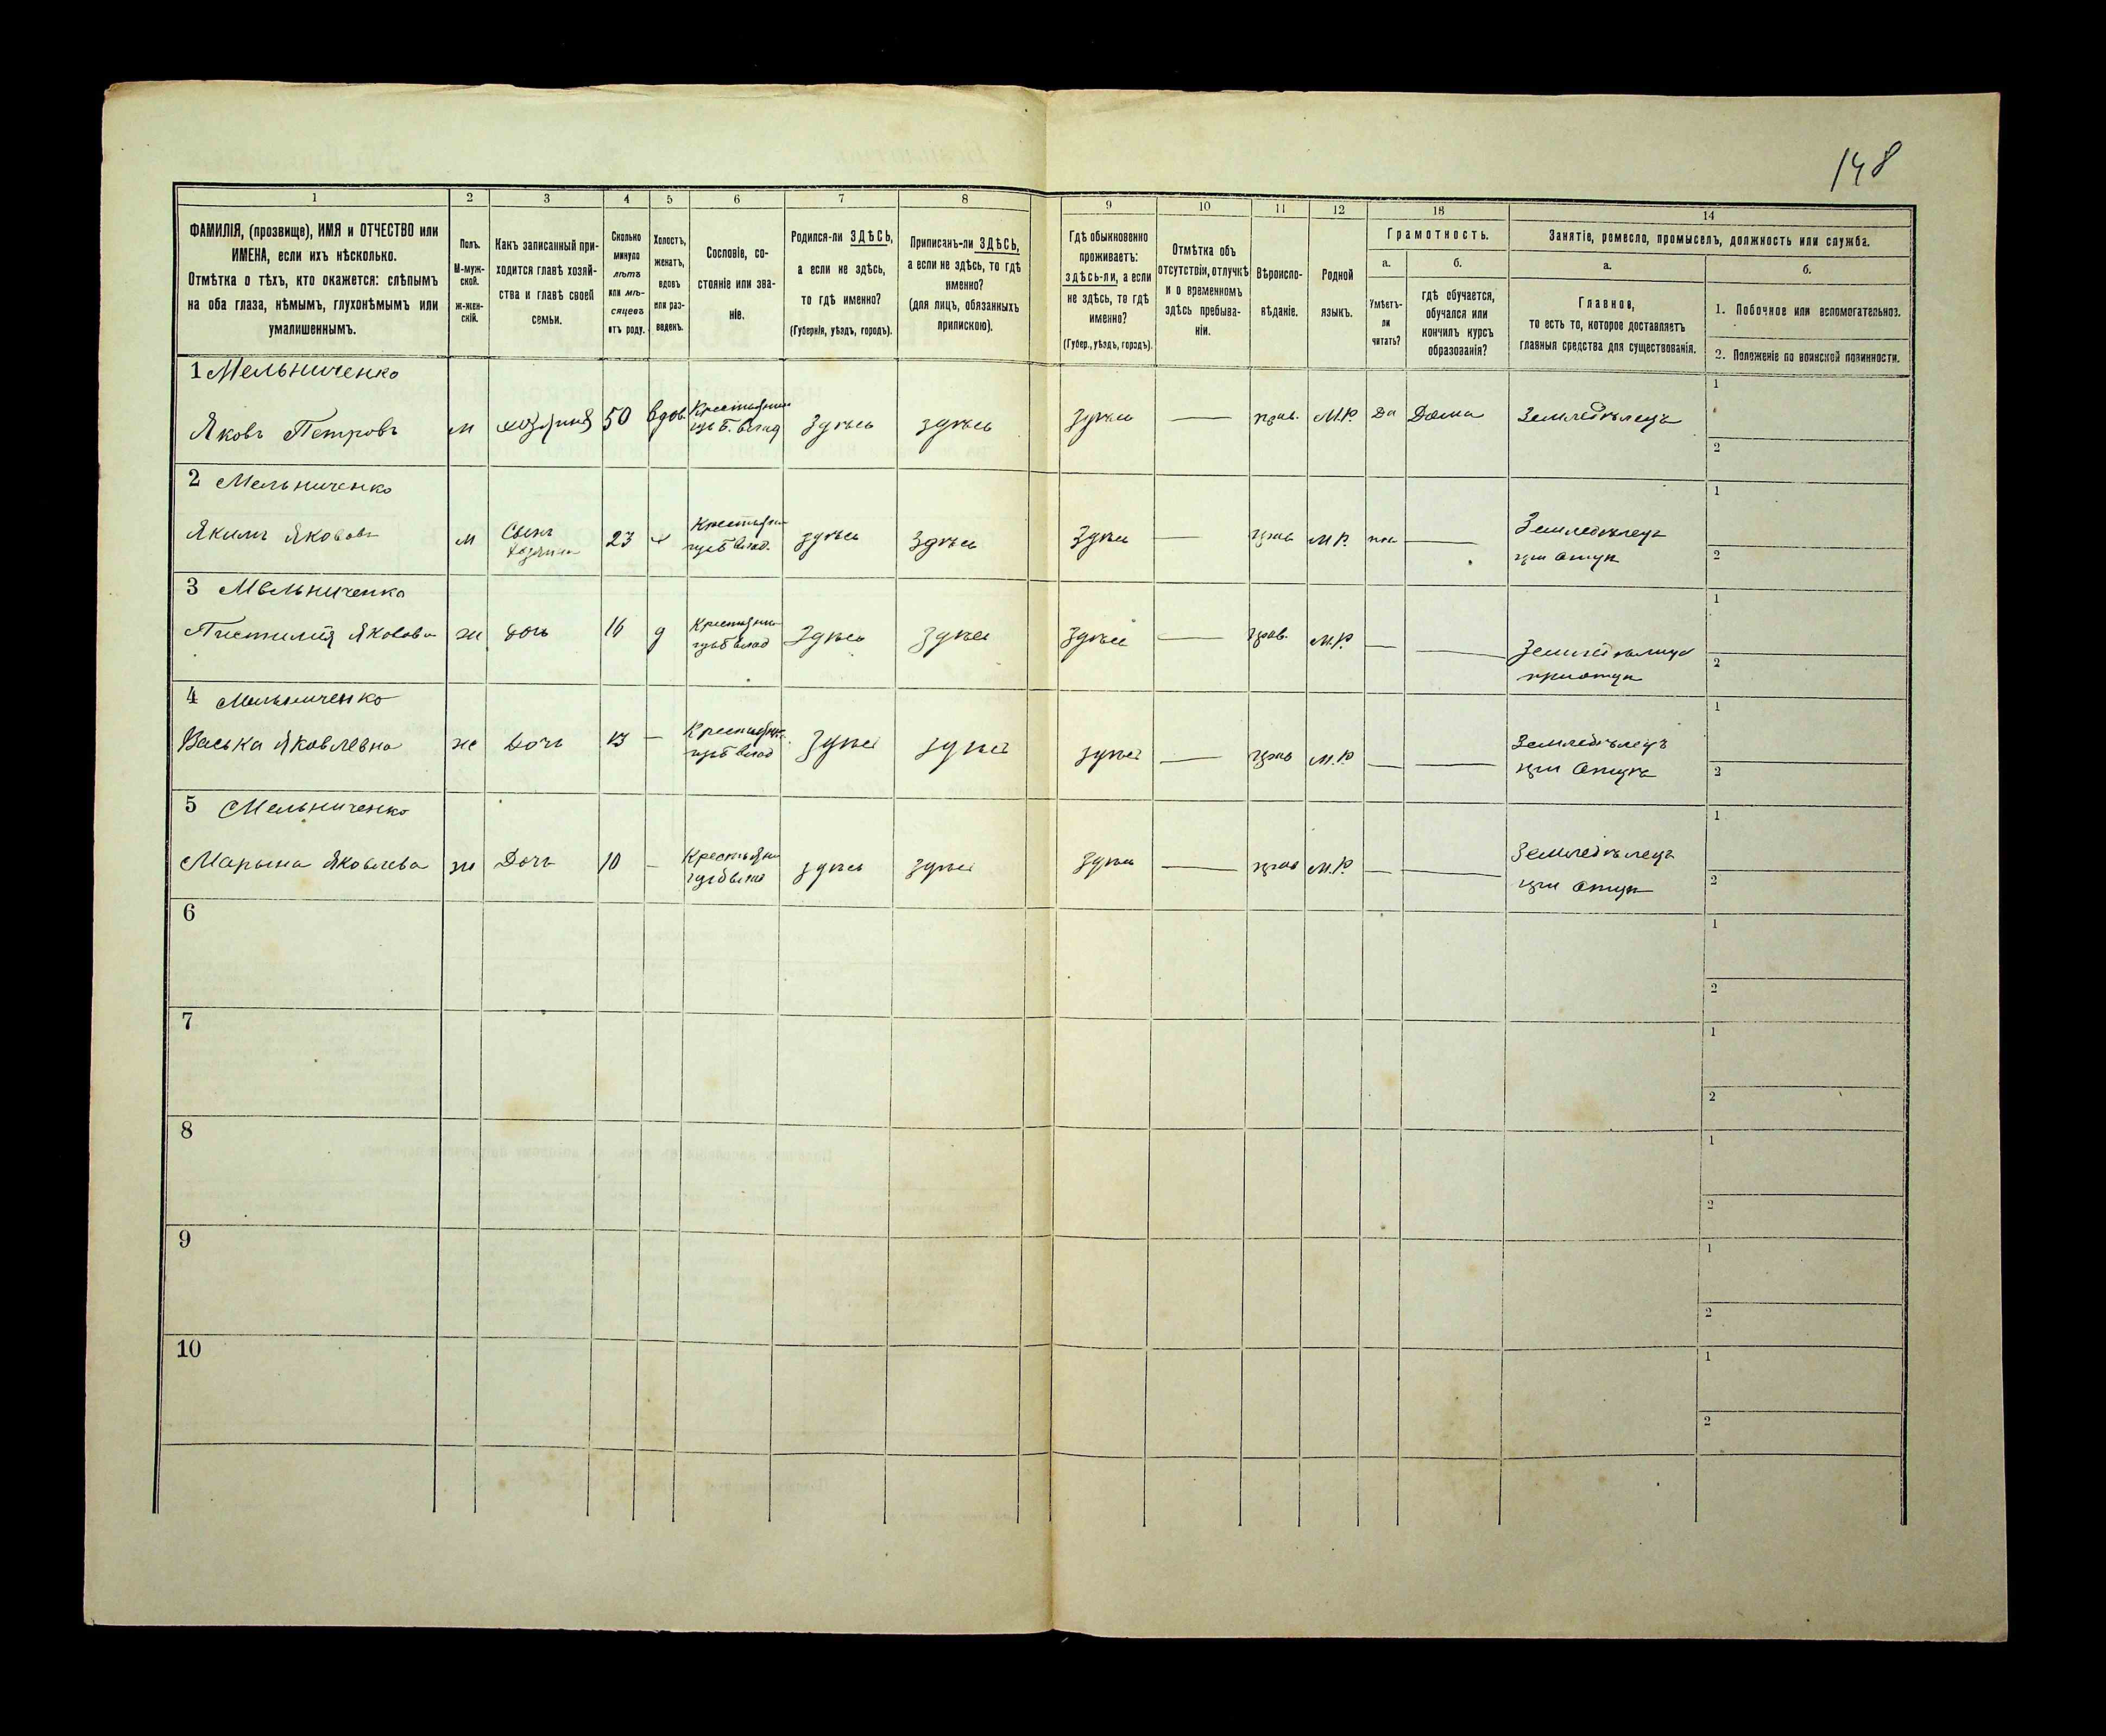 148
1 2 3 4 5 6 7 8 9 10 11 12 13 14
ФАМИЛІЯ, (прозвище), ИМЯ и ОТЧЕСТВО или
ИМЕНА, если ихъ нѣсколько.
Отмѣтка о тѣхъ, кто окажется: слѣпымъ
на оба глаза, нѣмымъ, глухонѣмымъ или
умалишеннымъ.
Полъ.
М-муж-
ской.
ж-жен-
скій.
Какъ записанный при-
ходится главѣ хозяй-
ства и главѣ своей
семьи.
Сколько
минуло
лѣтъ
или мѣ-
сяцевъ
отъ роду.
Холостъ,
женатъ,
вдовъ
или раз-
веденъ.
Сословіе, со-
стояніе или зва-
ніе.
Родился-ли ЗДѢСЬ,
а если не здѣсь,
то гдѣ именно?
(Губернія, уѣздъ, городъ).
Приписанъ-ли ЗДѢСЬ,
а если не здѣсь, то гдѣ
именно?
(для лицъ, обязанныхъ
припискою).
Гдѣ обыкновенно
проживаетъ:
здѣсь-ли, а если
не здѣсь, то гдѣ
именно?
(Губер., уѣздъ, городъ).
Отмѣтка объ
отсутствіи, отлучкѣ
и о временномъ
здѣсь пребыва-
ніи.
Вѣроиспо-
вѣданіе.
Родной
языкъ.
Грамотность.
а.
Умѣетъ-
ли
читать?
б.
гдѣ обучается,
обучался или
кончилъ курсъ
образованія?
Занятіе, ремесло, промыселъ, должность или служба.
а.
Главное,
то есть то, которое доставляетъ
главныя средства для существованія.
б.
1. Побочное или вспомогательное.
2. Положеніе по воинской повинности.
1 Мельниченко
Яковъ Петровъ м хозяинъ 50 вдов. Крестьянин здѣсь здѣсь здѣсь — прав. М.Р. Да Дома Земледѣлецъ
1
2
2 Мельниченко
Якимъ Яковов м Сынъ 23 х Крестьян здѣсь здѣсь здѣсь — прав М.Р. — Земледѣлец
хозяина влад. при отцѣ
1
2
3 Мельниченко
Яковова ж дочь 16 д Крестьян здѣсь здѣсь здѣсь — прав. М.Р. — —
влад при отцѣ
1
2
4 Мельниченко
Васька Яковлевна ж Дочь 13 — Крестьян здѣсь здѣсь здѣсь — прав М.Р. — — Земледѣлецъ
влад при отцѣ
1
2
5 Мельниченко
Марына Яковлева ж Дочь 10 — Крестьян здѣсь здѣсь здѣсь — прав М.Р. — — Земледѣлец
при отцѣ
1
2
6
1
2
7
1
2
8
1
2
9
1
2
10
1
2